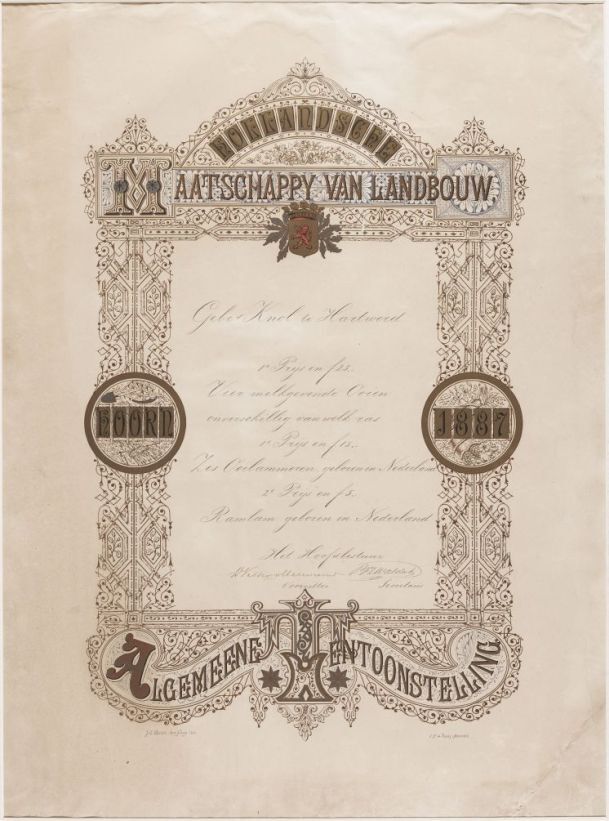 HOLLANDSCHE
MAATSCHAPPY VAN LANDBOUW.
Gebrs Knol te Hartwerd
1e Prys en f25.
Vier melkgevende Ooien
onverschillig van welk ras
HOORN
1887
1e Prys en f15.
Zes Ooilammeren geboren in Nederland
2e Prys en f5.
Ramlam geboren in Nederland
Het Hoofdbestuur
Voorzitter
Secretaris
ALGEMEENE TENTOONSTELLING